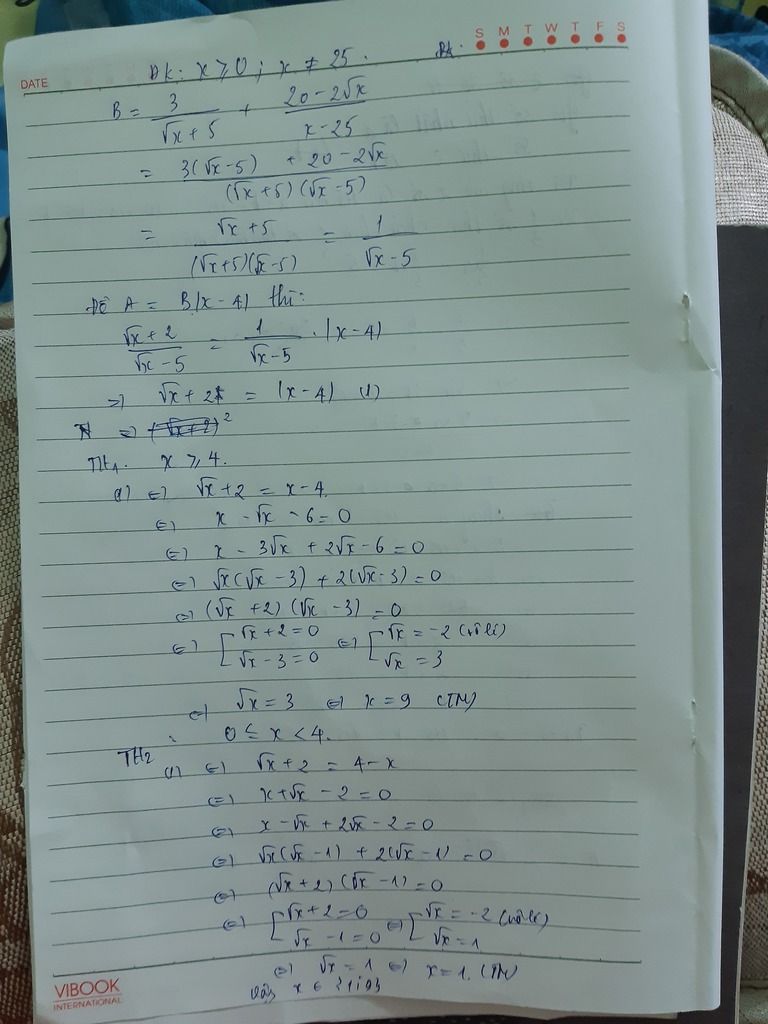 S M T W T F S
DATE
ĐK: x ≥ 0; x ≠ 25.
B = 3/(√x + 5) + (20 - 2√x)/(x - 25)
= (3(√x - 5) + 20 - 2√x)/((√x + 5)(√x - 5))
= (√x + 5)/((√x + 5)(√x - 5)) = 1/(√x - 5)
Để A = B|x - 4| thì:
(√x + 2)/(√x - 5) = 1/(√x - 5) . |x - 4|
=> √x + 2 = |x - 4| (1)
TH1. x ≥ 4.
(1) <=> √x + 2 = x - 4.
<=> x - √x - 6 = 0
<=> x - 3√x + 2√x - 6 = 0
<=> √x(√x - 3) + 2(√x - 3) = 0
<=> (√x + 2)(√x - 3) = 0
<=> [ √x + 2 = 0 <=> [ √x = -2 (vô lí)
√x - 3 = 0 √x = 3
<=> √x = 3 <=> x = 9 (TM)
TH2 : 0 ≤ x < 4.
(1) <=> √x + 2 = 4 - x
<=> x + √x - 2 = 0
<=> x - √x + 2√x - 2 = 0
<=> √x(√x - 1) + 2(√x - 1) = 0
<=> (√x + 2)(√x - 1) = 0
<=> [ √x + 2 = 0 <=> [ √x = -2 (vô lí)
√x - 1 = 0 √x = 1
<=> √x = 1 <=> x = 1. (TM)
Vậy x ∈ {1; 9}
VIBOOK
INTERNATIONAL